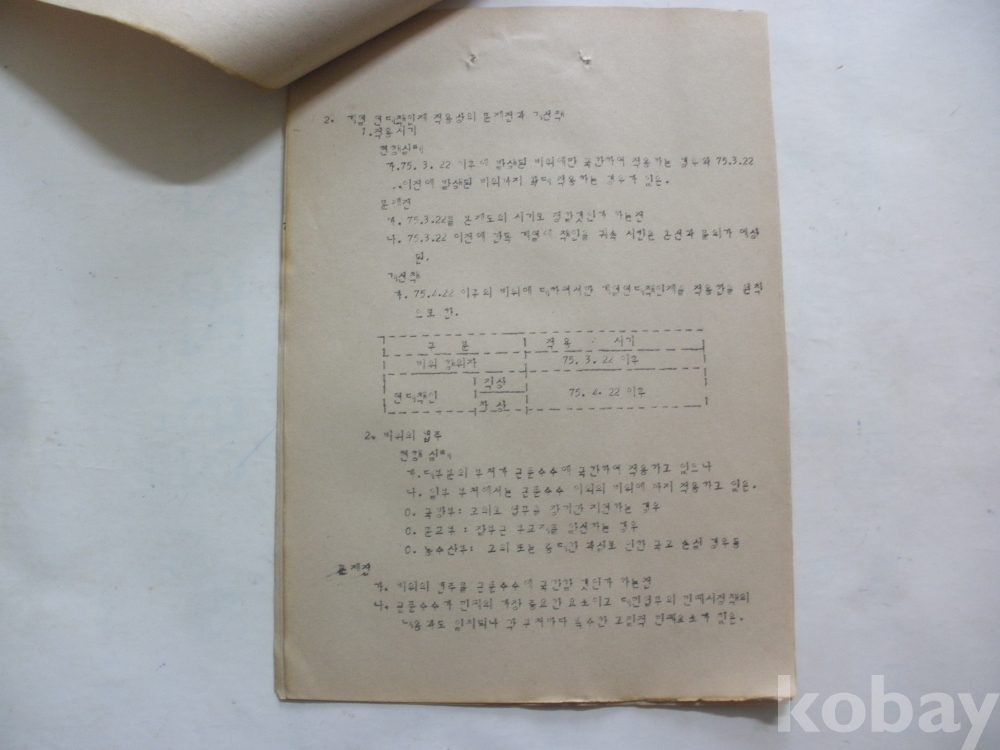 2. 계열 연대책인제 적용상의 문제점과 개선책
1. 적용시기
현행실태
가. 75. 3. 22 이후에 발생된 비위에만 국한하여 적용하는 경우와 75.3.22
이전에 발생된 비위까지 확대 적용하는 경우가 있음.
문제점
가. 75.3.22을 문제도의 시기로 하는점
나. 75.3.22 이전에 계열에 책인을 귀속 시킨은 혼선과 물의가 예상
됨.
개선책
가. 75.2.22 이후의 비위에 대하여서만 계열연대책인제을 적용함을 원칙
으로 함.
구 분 적 용 시기
비위 행위자 75. 3. 22 이후
연대책인 직상 75. 2. 22 이후
차 상
2. 비위의 범주
현행 실태
가. 대부분의 부처가 금품수수에 국한하여 적용하고 있으나
나. 일부 부처에서는 금품수수 이외의 비위에 까지 적용하고 있음.
0. 국방부: 고의로 업무을 장기간 지연하는 경우
0. 문교부 : 잡부금 을 하는 경우
0. 농수산부: 고의 또는 중대한 과실로 인한 국고 손실 경우등
문제점
가. 비위의 범주을 금품수수에 국한할 것인가 하는점
나. 금품수수가 민폐의 가장 중요한 요소이고 대민업무의 민폐시정책의
내용과도 일치되나 각 부처마다 특수한 고질적 민폐요소가 있음.
kobay